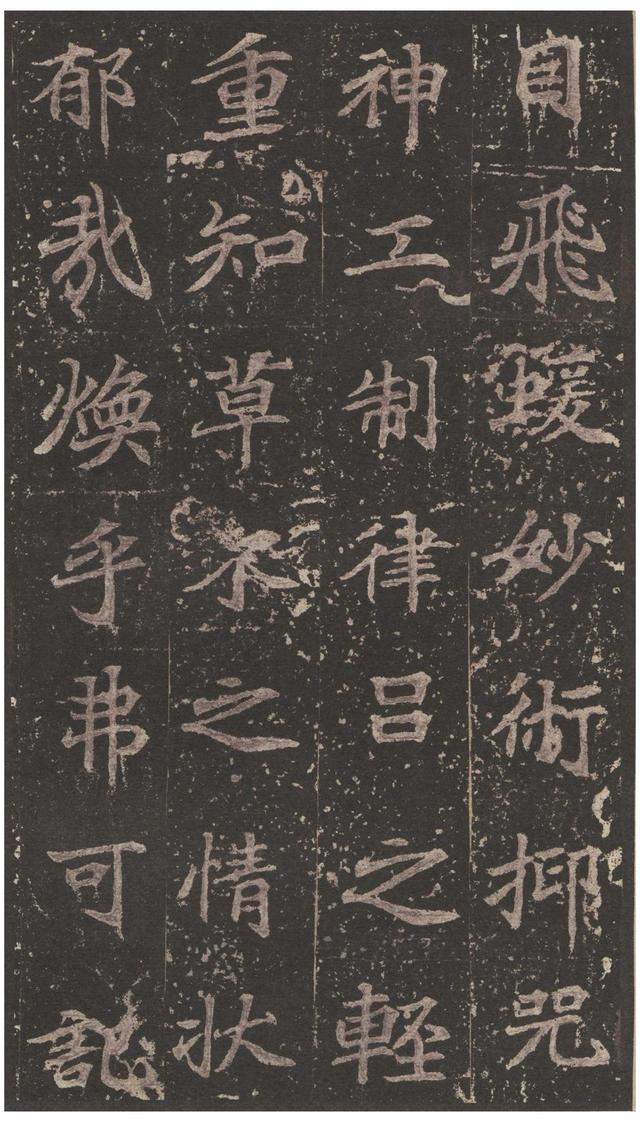 自飛蝯妙術抑咒
神工制律呂之輕
重知草木之情狀
郁哉煥乎弗可記